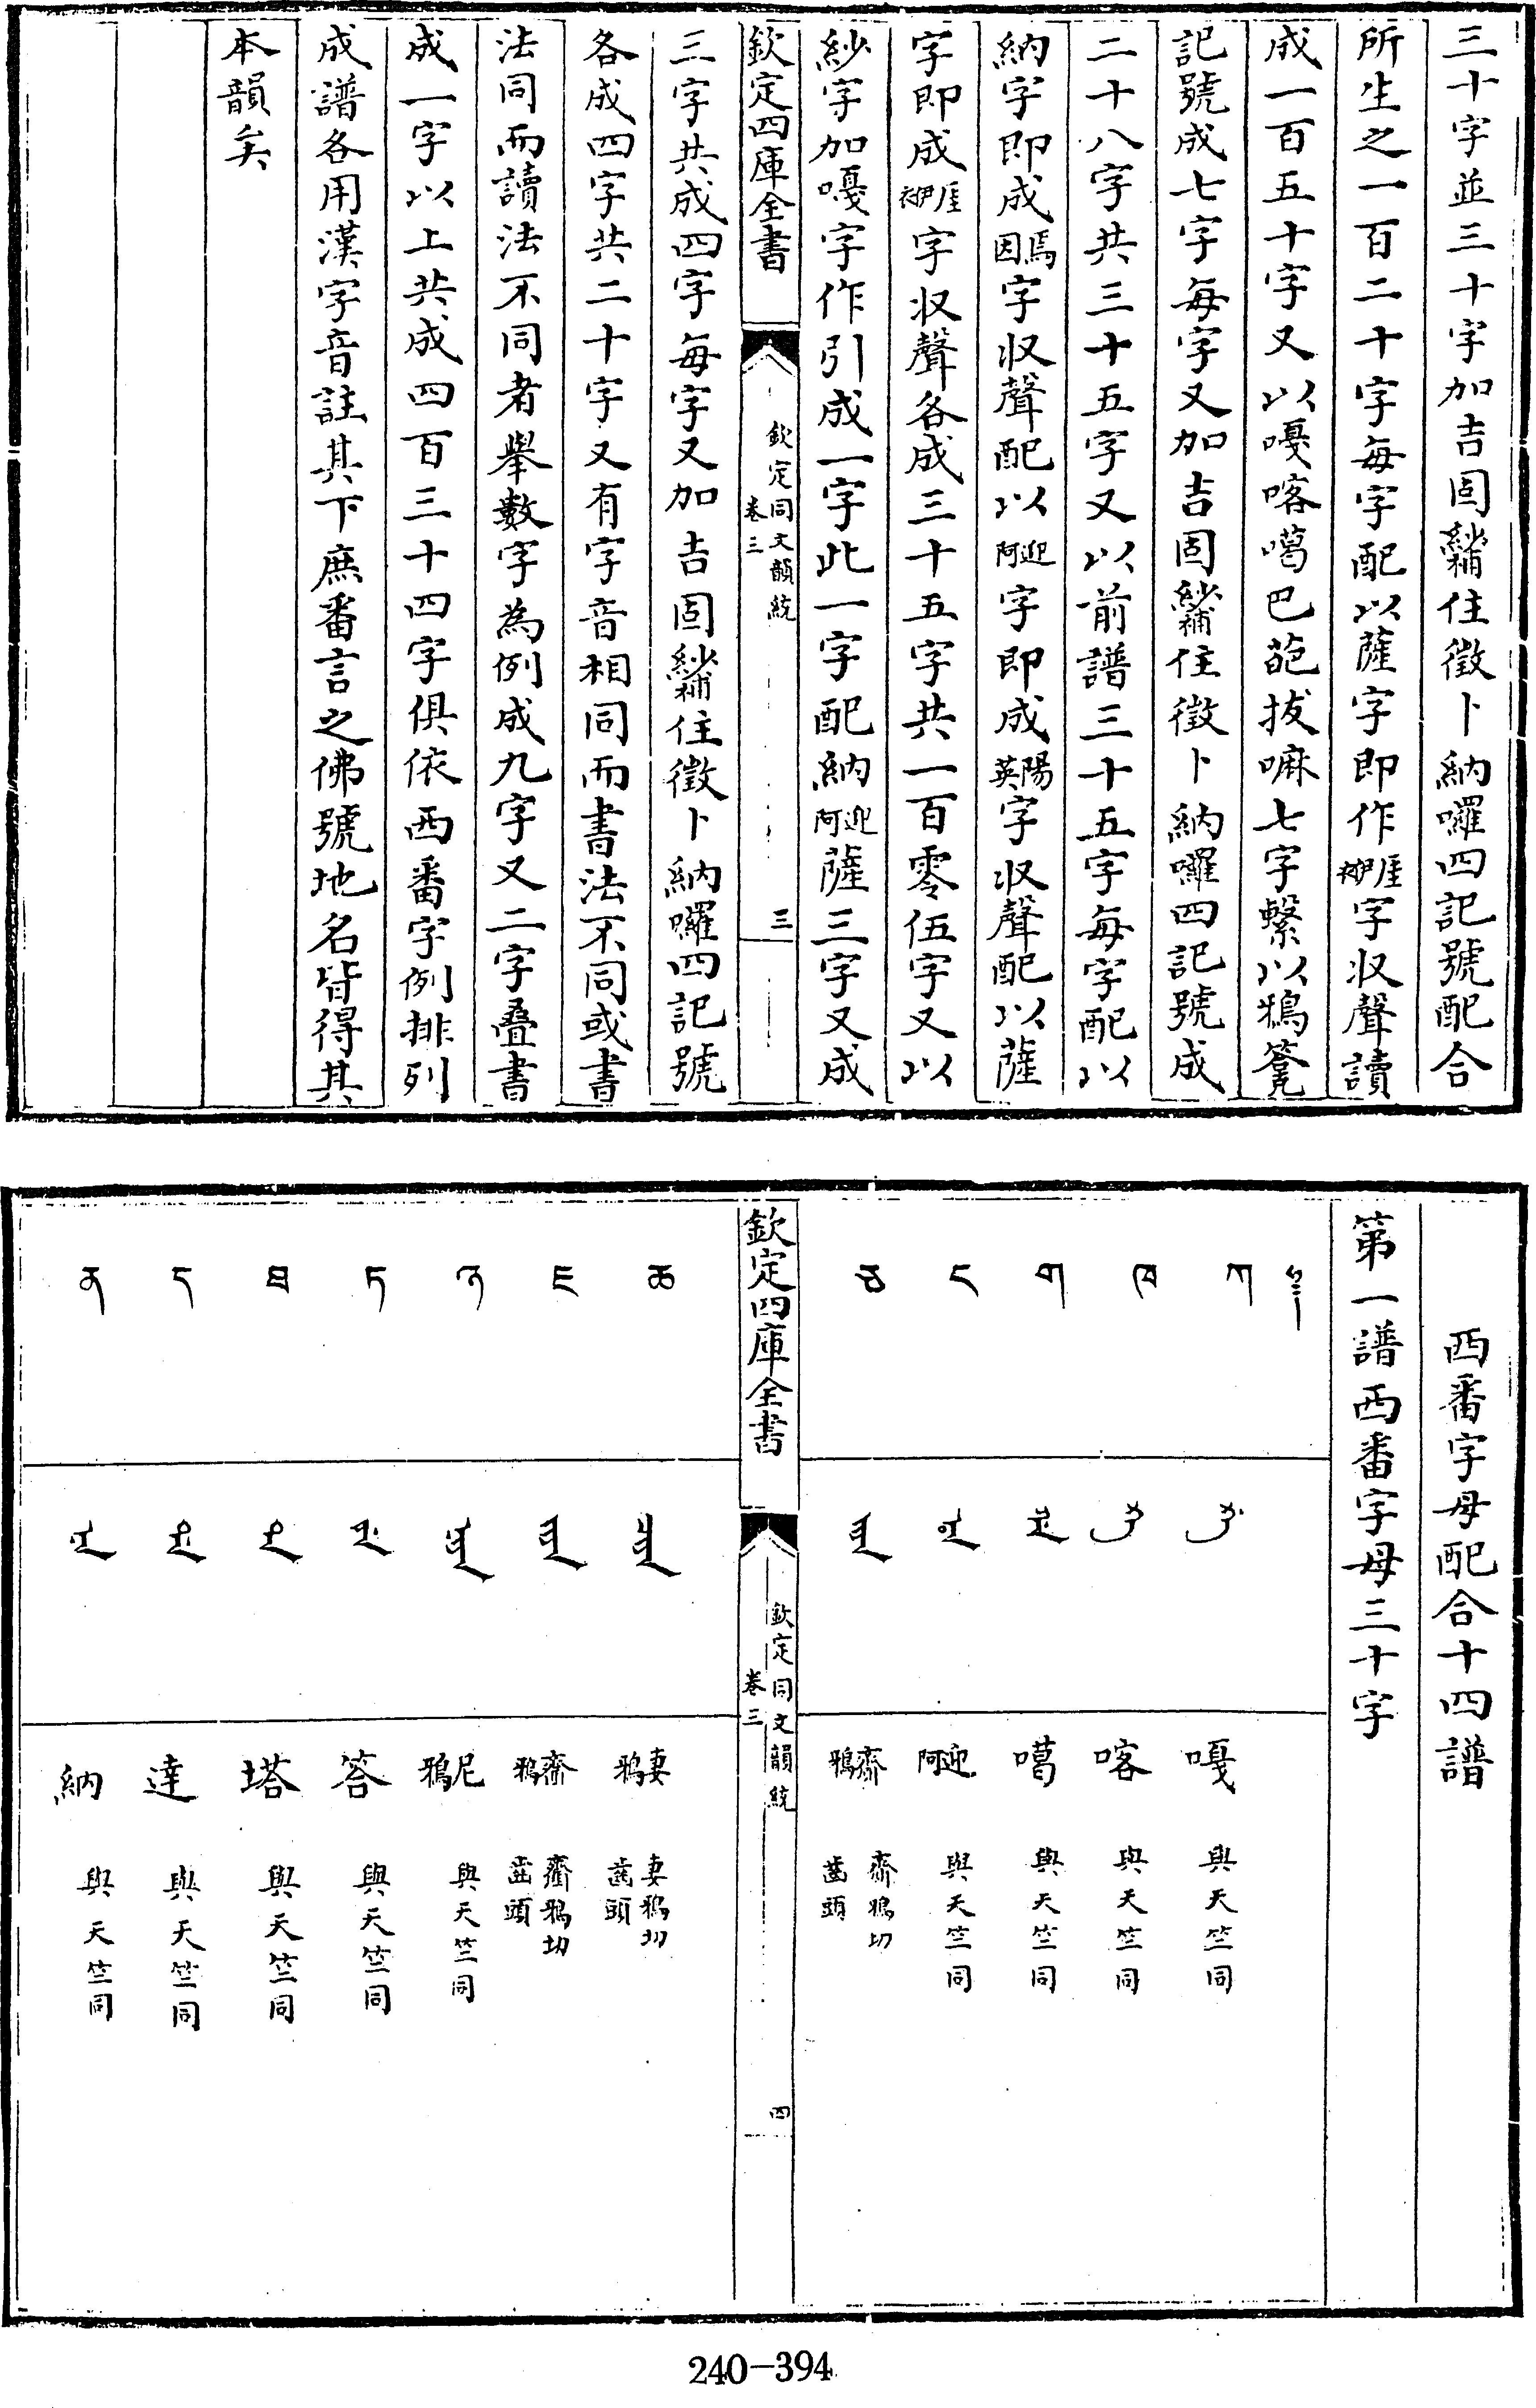 三十字並三十字加吉固紗補住徵卜納囉四記號配合
所生之一百二十字每字配以薩字即作厓伊字收聲讀
成一百五十字又以嘎喀噶巴葩拔嘛七字繫以鴉
記號成七字每字又加吉固紗補住徵卜納囉四記號成
二十八字共三十五字又以前譜三十五字每字配以
納字即成焉因字收聲配以迎阿字即成陽英字收聲配以薩
字即成厓伊字收聲各成三十五字共一百零伍字又以
紗字加嘎字作引成一字此一字配納迎阿薩三字又成
欽定四庫全書
欽定同文韻統
卷三
三
三字共成四字每字又加吉固紗補住徵卜納囉四記號
各成四字共二十字又有字音相同而書法不同或書
法同而讀法不同者舉數字為例成九字又二字疊書
成一字以上共成四百三十四字俱依西番字例排列
成譜各用漢字音註其下庶番言之佛號地名皆得其
本韻矣
西番字母配合十四譜
第一譜西番字母三十字
ཀ
嘎 與天竺同
ཁ
喀 與天竺同
ག
噶 與天竺同
ང
迎阿 與天竺同
ཅ
齋鴉 齋鴉切齒頭
欽定四庫全書
欽定同文韻統
卷三
四
ཆ
妻鴉 妻鴉切齒頭
ཇ
齋鴉 齋鴉切齒頭
ཉ
尼鴉 與天竺同
ཏ
答 與天竺同
ཐ
塔 與天竺同
ད
達 與天竺同
ན
納 與天竺同
240-394